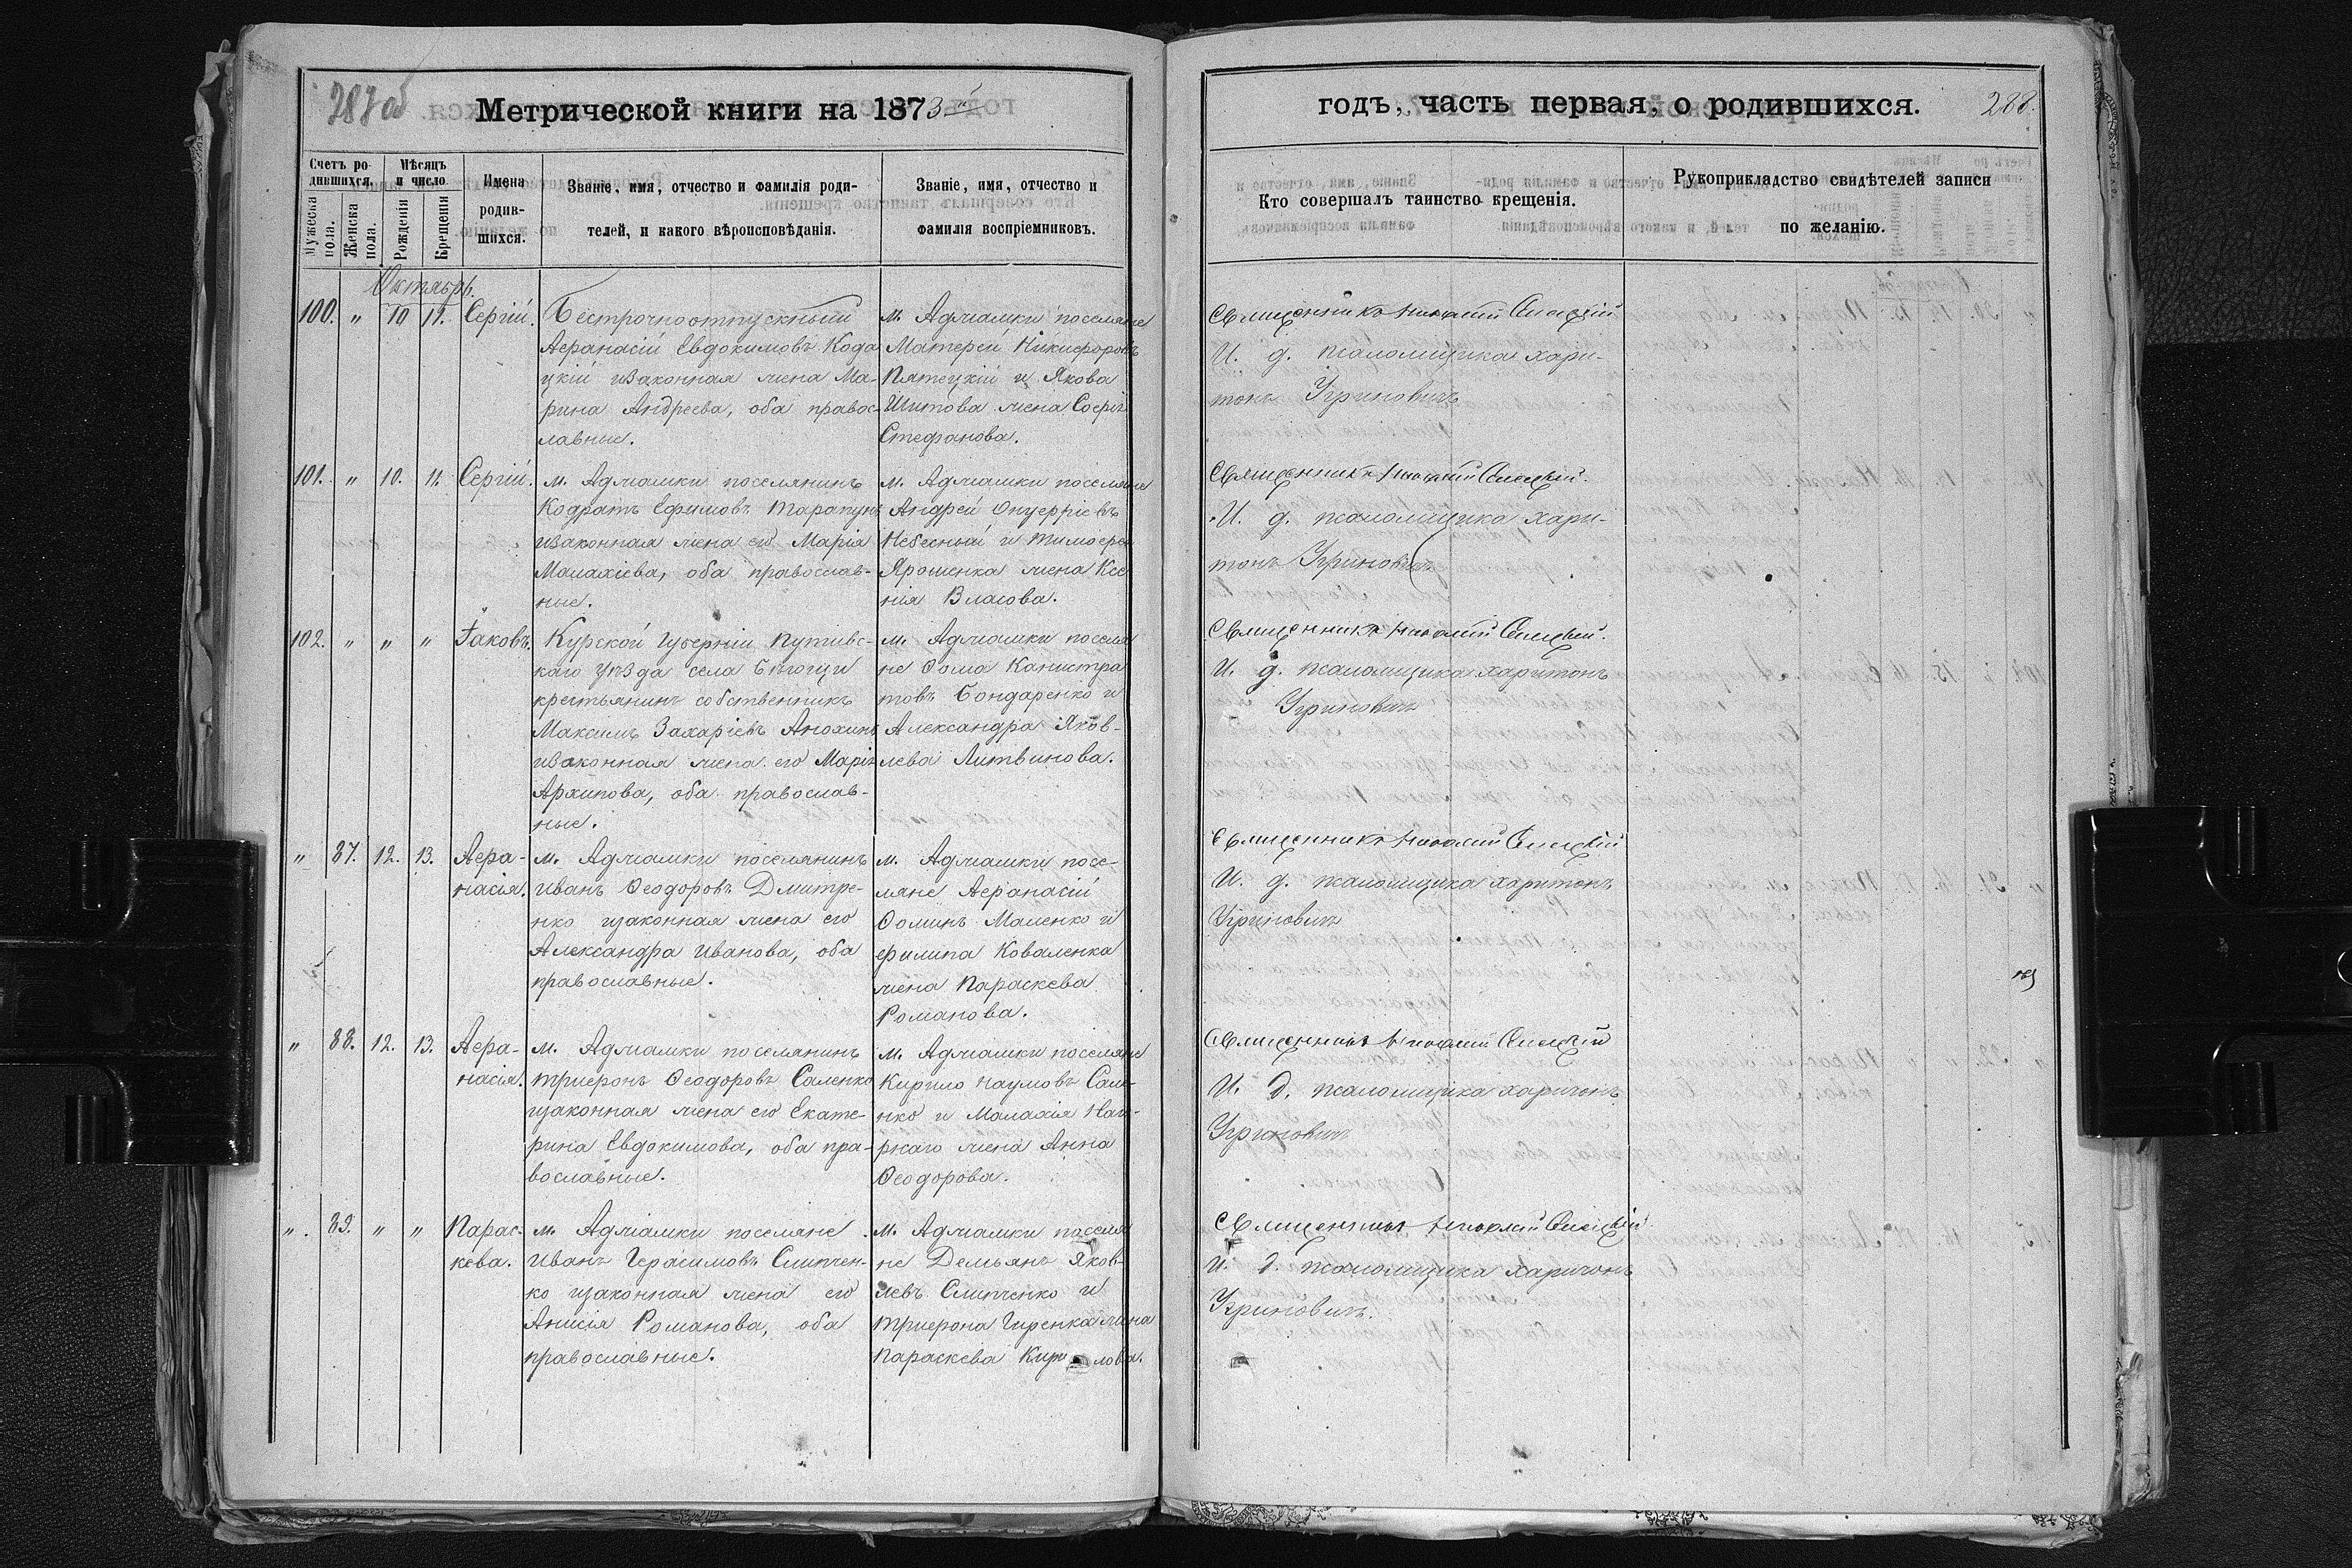 287 об
Метрической книги на 1873й
годъ, часть первая, о родившихся.
288.
Счетъ ро-
дившихся.
Мужеска пола.
Женска пола.
Мѣсяцъ
и число
Рожденія
Крещенія
Имена
родив-
шихся.
Званіе, имя, отчество и фамилія роди-
телей, и какого вѣроисповѣданія.
Званіе, имя, отчество и
фамилія воспріемниковъ.
Кто совершалъ таинство крещенія.
Рукоприкладство свидѣтелей записи
по желанію.
Октябрь.
100. " 10 11. Сергій.
Безсрочноотпускный
Аѳанасій Евдокимовъ Кода
цкій изаконная жена Ма-
рина Андреева, оба правос-
лавные.
м. Аджамки поселяне
Матѳей Никифоровъ
Пятецкій и Якова
Шитова жена Софія
Стефанова.
Священникъ Николай
И. д. псаломщика Хари-
тонъ Угриновичъ
101. " 10. 11. Сергій.
м. Аджамки поселянинъ
Кодратъ Ефимовъ Тарапунъ
изаконная жена его Марія
Малахіева, оба православ-
ные.
м. Аджамки поселяне
Андрей Онуфріевъ
Небесный и Тимофея
Ярошенка жена Ксе
нія Власова.
Священникъ Николай
И. д. псаломщика Хари-
тонъ Угриновичъ
102. " " " Іаковъ.
Курской губерніи Путивс-
каго уѣзда села
крестьянинъ собственникъ
Максимъ Захаріевъ Анохинъ
изаконная жена его Марія
Архипова, оба православ-
ные.
м. Аджамки поселя
не Ѳома Канистра
товъ Бондаренко и
Александра Яков-
лева Литвинова.
Священникъ Николай
И. д. псаломщика Харитонъ
Угриновичъ
" 87. 12. 13. Аѳа-
насія.
м. Аджамки поселянинъ
Иванъ Ѳеодоровъ Дмитре-
нко изаконная жена его
Александра Иванова, оба
православные.
м. Аджамки посе-
ляне Аѳанасій
Ѳоминъ Маленко и
Филипа Коваленка
жена Параскева
Романова.
Священникъ Николай
И. д. псаломщика Харитонъ
Угриновичъ
" 88. 12. 13. Аѳа-
насія.
м. Аджамки поселянинъ
Трифонъ Ѳеодоровъ Саленко
изаконная жена его Екате-
рина Евдокимова, оба пра-
вославные.
м. Аджамки поселяне
Кирило Наумовъ Сале-
нко и Малахія
жена Анна
Ѳеодорова.
Священникъ Николай
И. д. псаломщика Харитонъ
Угриновичъ
" 89. " " Парас-
кева.
м. Аджамки поселяне
Иванъ Герасимовъ Слипчен-
ко изаконная жена его
Анисія Романова, оба
православные.
м. Аджамки поселя
не Демьянъ Яков-
левъ Слипченко и
Трифона Гиренка жена
Параскева Кирилова.
Священникъ Николай
И. д. псаломщика Харитонъ
Угриновичъ.